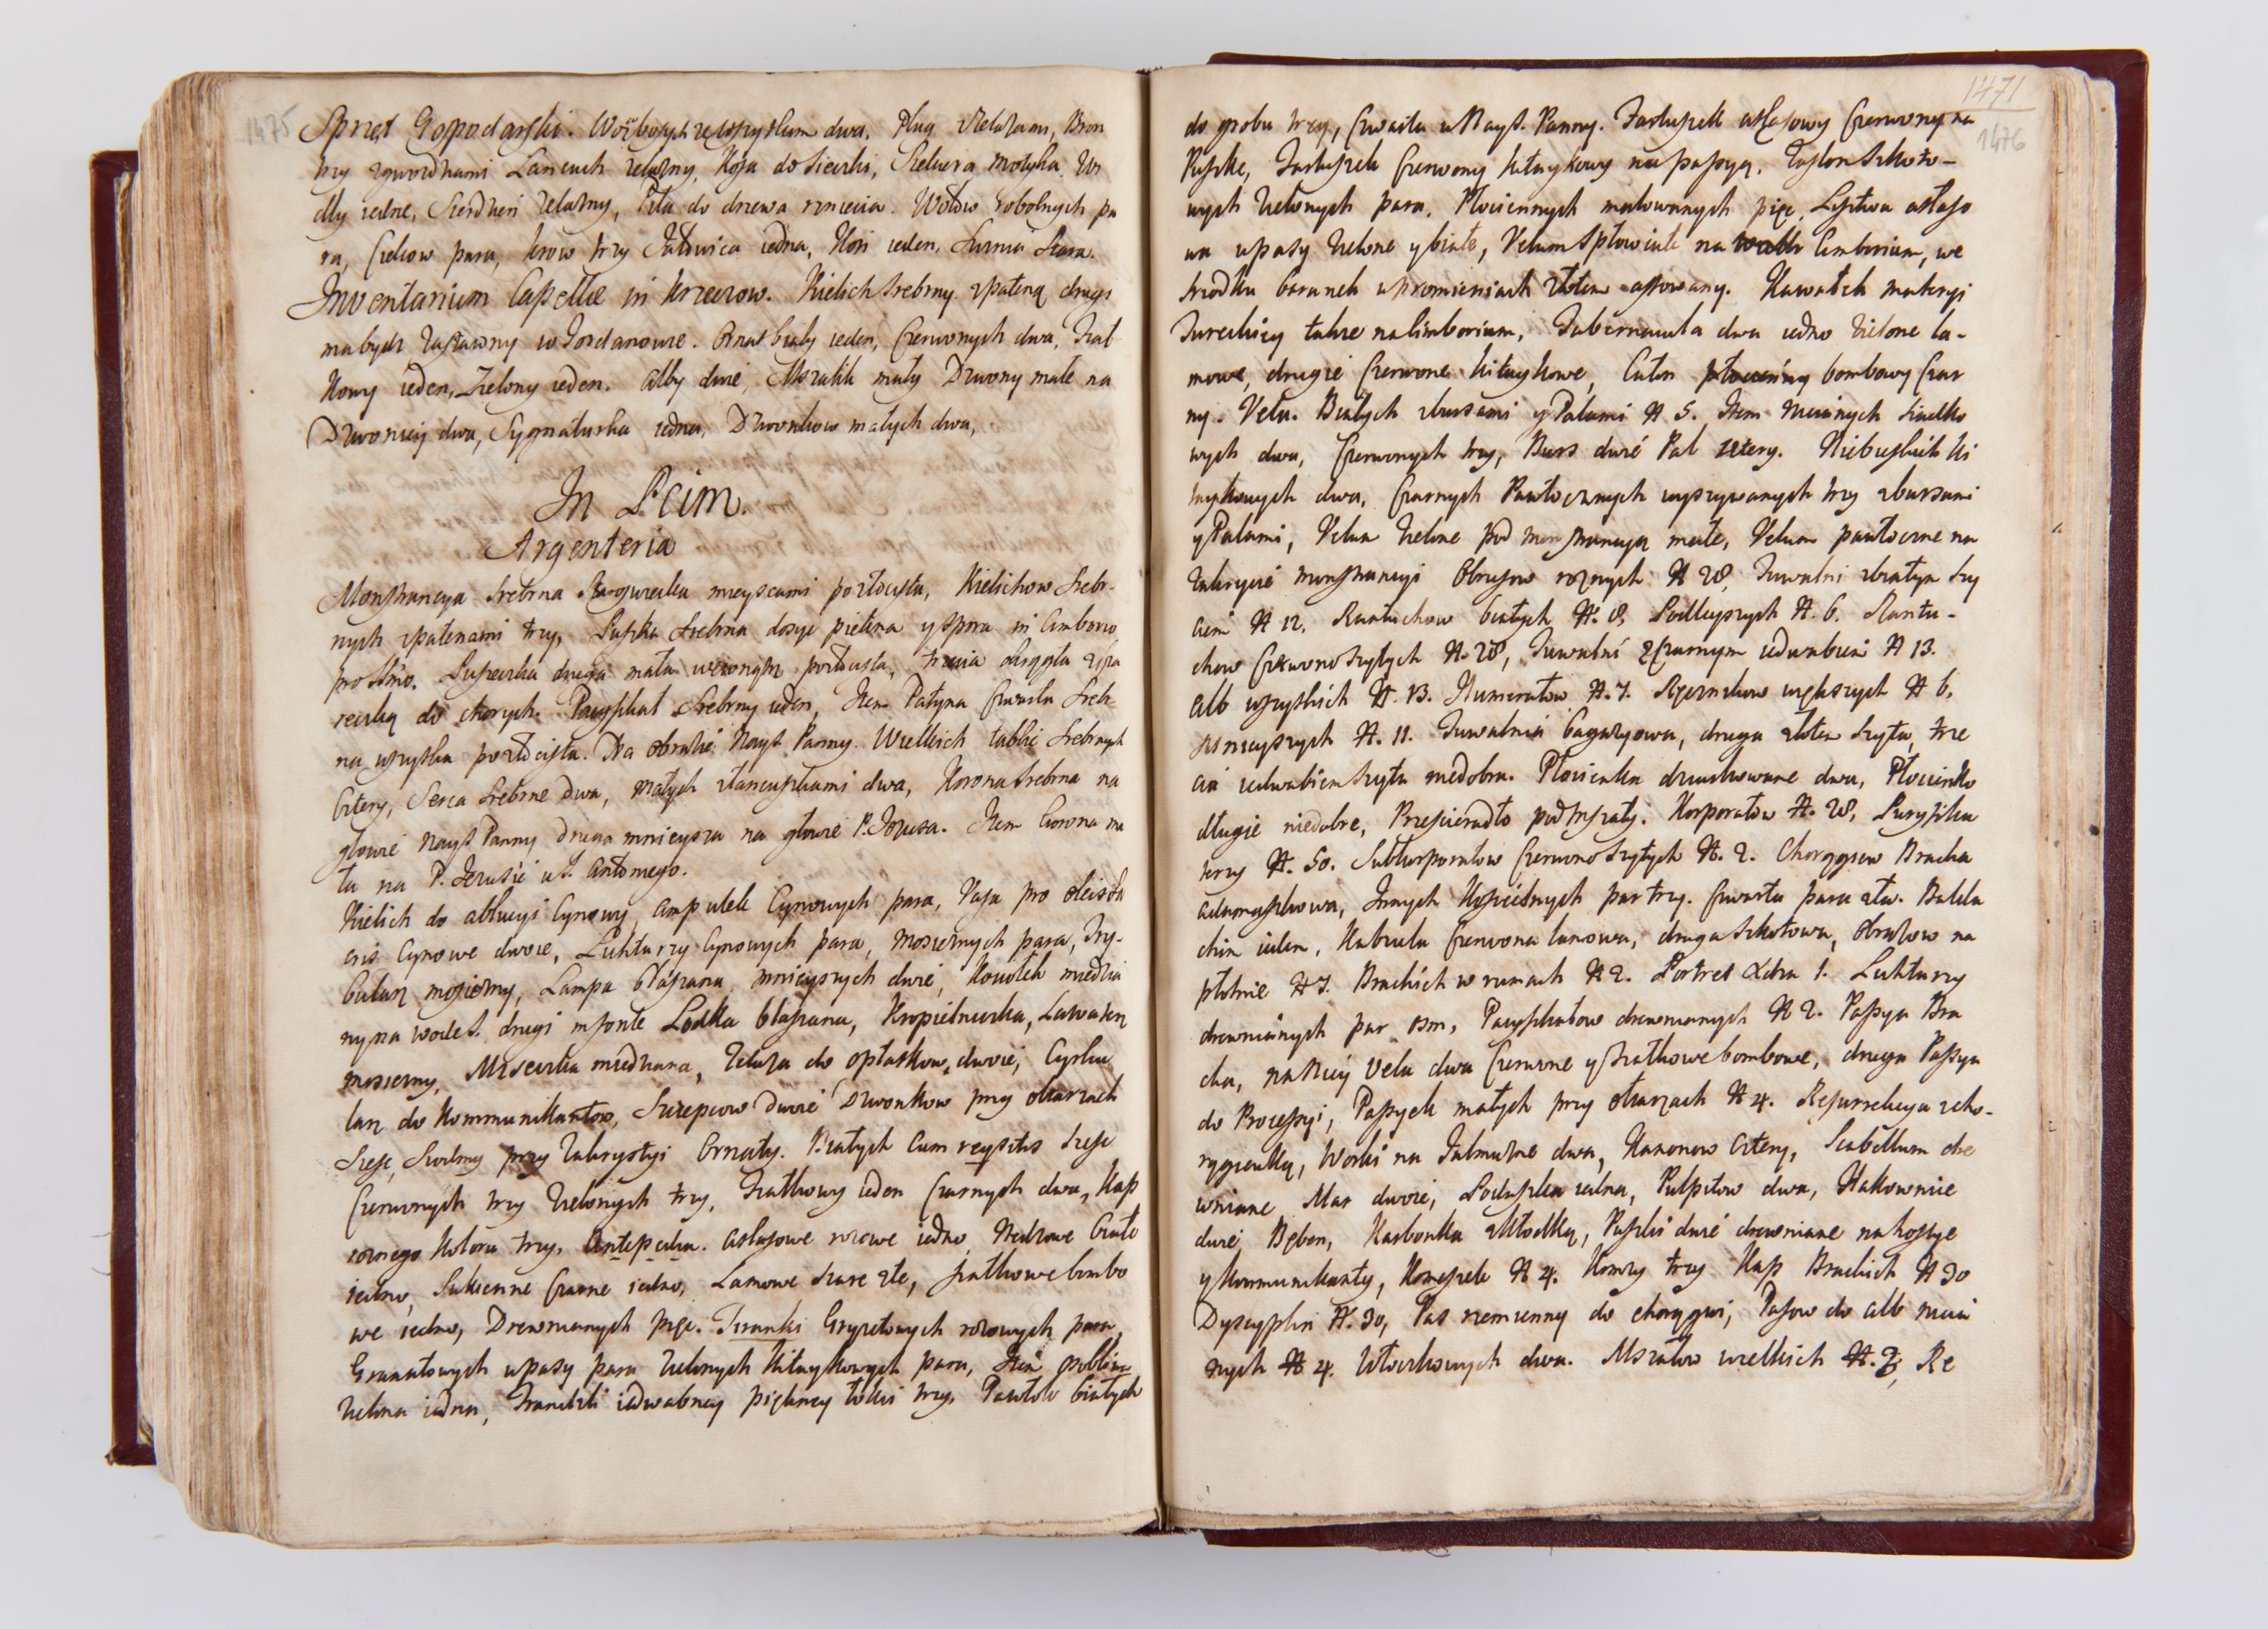 1475
Sprzęt Gospodarski. Woz bosych ze wszystkim dwa, Pług z żelazami, Bron
trzy zgwozdkami Lancuch zelazny, Kosa do sieczki, Siekiera motyka, Wi
dły iedne, Swidzień zelazny, Piła do drzewa rzniecia. Wołow robotnych pa
ra, Cielcow para, krow trzy Jałowica iedna, Koń ieden, Kurna stara.
Inventarium Capellæ in Krzeczow. Kielich srebrny z pateną drugi
ma bydź zastawny w Jordanowie. Ornat biały ieden, Czerwonych dwa, Fiał
kowy ieden, Zielony ieden. Alby dwie, Mszalik mały Dzwony małe na
Dzwonicy dwa, Sygnaturka iedna, Dzwonkow małych dwa,
In Łcim.
Argenteria
Monstrancya srebrna Staroswiecka mieyscami pozłocista, Kielichow srebr-
nych z patenami trzy, Puszka srebrna dosyć piekna y spora in Ciborio
pro SSmo. Puszeczka druga mała wewnątrz pozłocista, trzecia okrągła z pu
reczką do chorych. Pacyfikał srebrny ieden, Item Patyna Czwarta srebr-
na wszystka pozłocista. Na obrazie Nayś. Panny. Wielkich tablic srebrnych
cztery, Serca srebrne dwa, małych z łancuszkami dwa, Korona srebrna na
głowie Nayś Panny Druga mnieysza na głowie P. Jezusa. Item Corona ma
ła na P. Jezusie u S. Antoniego.
Kielich do ablucyi Cynowy, ampułek Cynowych para, Vasa pro oleis sa
cris Cynowe dwoie, Lichtarzy Cynowych para, mosieznych para, Try-
bularz mosiezny, Lampa blaszana, mnieyszych dwie, Kociołek miedzia
ny na wode S. drugi in fonte Łodka blaszana, Kropielniczka, Lawaterz
mosiezny, Miseczka miedziana, Zelaza do opłatkow dwoie, Cyrku
larz do kommunikantow, Swiecow dwoie Dzwonkow przy ołtarzach
szesc, Siodmy przy Zakrystyi Ornaty. Białych cum reqsitis szesc
Czerwonych trzy Zielonych trzy, Fiałkowy ieden Czarnych dwa, Kap
roznego koloru trzy. Antepedia. Atłasowe nowe iedno, Jedwabne białe
iedno, Sukienne Czarne iedno, Lamowe stare złe, fiałkowe bombo
we iedno, Drewnianych pięć. Firanki Gryzetowych nowych para,
Granatowych w pasy para Zielonych kitaykowych para, Item gobelina
Zielona iedna, Frandzli iedwabney piękney łokci trzy, Pawłok białych
1471
1476
do grobu trzy, Czwarta u Nayś. Panny. Fartuszek atłasowy Czerwony na
Puszkę, Fartuszek Czerwony kitaykowy na passyą, Zasłon szkoto-
wych Zielonych para, Płociennych malowanych pięć, Lisztwa atłaso
wa w pasy Zielone y białe, Velum spłowiałe na Ciborium, we
srodku baranek w promieniach złotem haftowany. Kawałek materyi
Tureckiey także na Ciborium, Tabernacula dwa iedno zielone la-
mowe, drugie Czerwone kitaykowe, Całun bombowy Czar
ny. Vela. Białych z bursami y Palami N 5. Item Mienionych siatko
wych dwa, Czerwonych trzy, Burs dwie Pal cztery. Niebieskich ki
taykowych dwa, Czarnych Pawłocznych wyszywanych trzy z bursami
y Palami, Velum zielone pod monstrancyą małe, Velum pawłoczne na
zakrycie monstrancyi Obrusow roznych N 28, Tuwalni z białym szy
ciem N 12. Rantuchow białych N. 8, Podleyszych N. 6. Rantu-
chow Czerwono szytych N. 28, Tuwalni z Czarnym iedwabiem N 13.
Alb wszystkich N. 13. Humerałow N. 7. Ręcznikow większych N 6,
mnieyszych N. 11. Tuwalnia bagazyowa, druga złotem szyta, trze
cia iedwabiem szyta niedobra. Płocienka drukowane dwa, Płocienko
długie niedobre, Przescieradło pod mszały. Korporałow N. 28, Puryfika
terzy N. 50. Subkorporałow Czerwono szytych N. 2. Chorągiew Bracka
adamaszkowa, Innych kościelnych par trzy. Czwarta para zła. Balda
chim ieden, Kabzula Czerwona lamowa, druga szkotowa, Obrazow na
płotnie N 7. Brackich w ramach N 2. Portret Xdza 1. Lichtarzy
drewnianych par osm, Pacyfikałow drewnianych N 2. Passya Bra
cka, na niey Vela dwa Czerwone y fiałkowe bombowe, druga Passya
do Processyi, Passyek małych przy ołtarzach N 4. Resurrekcya z cho-
rągiewką, Worki na Jałmuzne dwa, Kanonow cztery, Scabellum dre
wniane Mar dwoie, Poduszka iedna, Pulpitow dwa, Klakownice
dwie Bęben, Karbonka z kłodką, Puszki dwie drewniane na hostye
y kommunikanty, Komeszek N 4. Komzy trzy Kap Brackich N 30
Dyscyplin N. 30, Pas rzemienny do chorągwi, Pasow do alb nicia
nych N 4. Włoczkowych dwa. Mszałow wielkich N. 3, Re